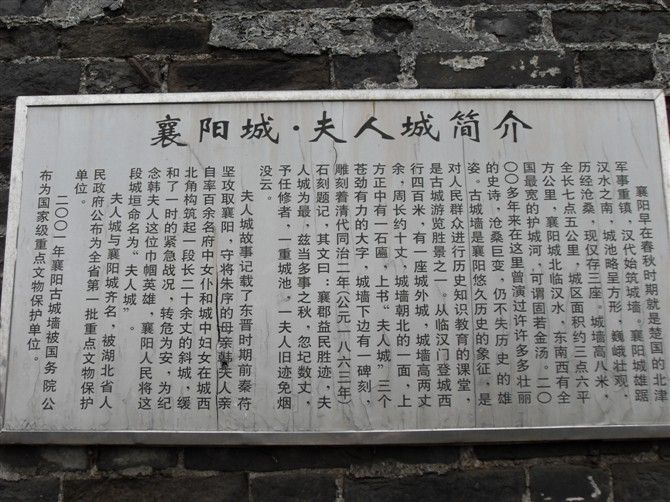 襄阳城·夫人城简介
襄阳早在春秋时期就是楚国的北津
军事重镇，汉代始筑城墙。襄阳城雄踞
汉水之南，城池略呈方形，巍峨壮观，
历经沧桑，现仅存三座。城墙高八米，
全长七点五公里，城区面积约三点六平
方公里，襄阳城北临汉水，东南西有全
国最宽的护城河，可谓固若金汤。二〇
〇〇多年来在这里曾演过许许多多壮丽
的史诗，沧桑巨变，仍不失历史的雄
姿。古城墙是襄阳悠久历史的象征，是
对人民群众进行历史知识教育的课堂，
是古城游览胜景之一。从临汉门登城西
行四百米，有一座城外城，城墙高两丈
余，周长约十丈，城墙朝北的一面，上
方正中有一石匾，上书“夫人城”三个
苍劲有力的大字，城墙下边有一碑刻，
雕刻着清代同治二年（公元一八六三年）
石刻题记，其文曰：襄郡益民胜迹，夫
人城为最，兹当多事之秋，忽圮数丈，
予任修者，一重城池。一夫人旧迹免烟
没云。
夫人城故事记载了东晋时期前秦苻
坚攻取襄阳，守将朱序的母亲韩夫人亲
自率百余名府中女仆和城中妇女在城西
北角构筑起一段长二十余丈的斜城，缓
和了一时的紧急战况，转危为安，为纪
念韩夫人这位巾帼英雄，襄阳人民将这
段城垣命名为“夫人城”。
夫人城与襄阳城齐名，被湖北省人
民政府公布为全省第一批重点文物保护
单位。
二〇〇一年襄阳古城墙被国务院公
布为国家级重点文物保护单位。